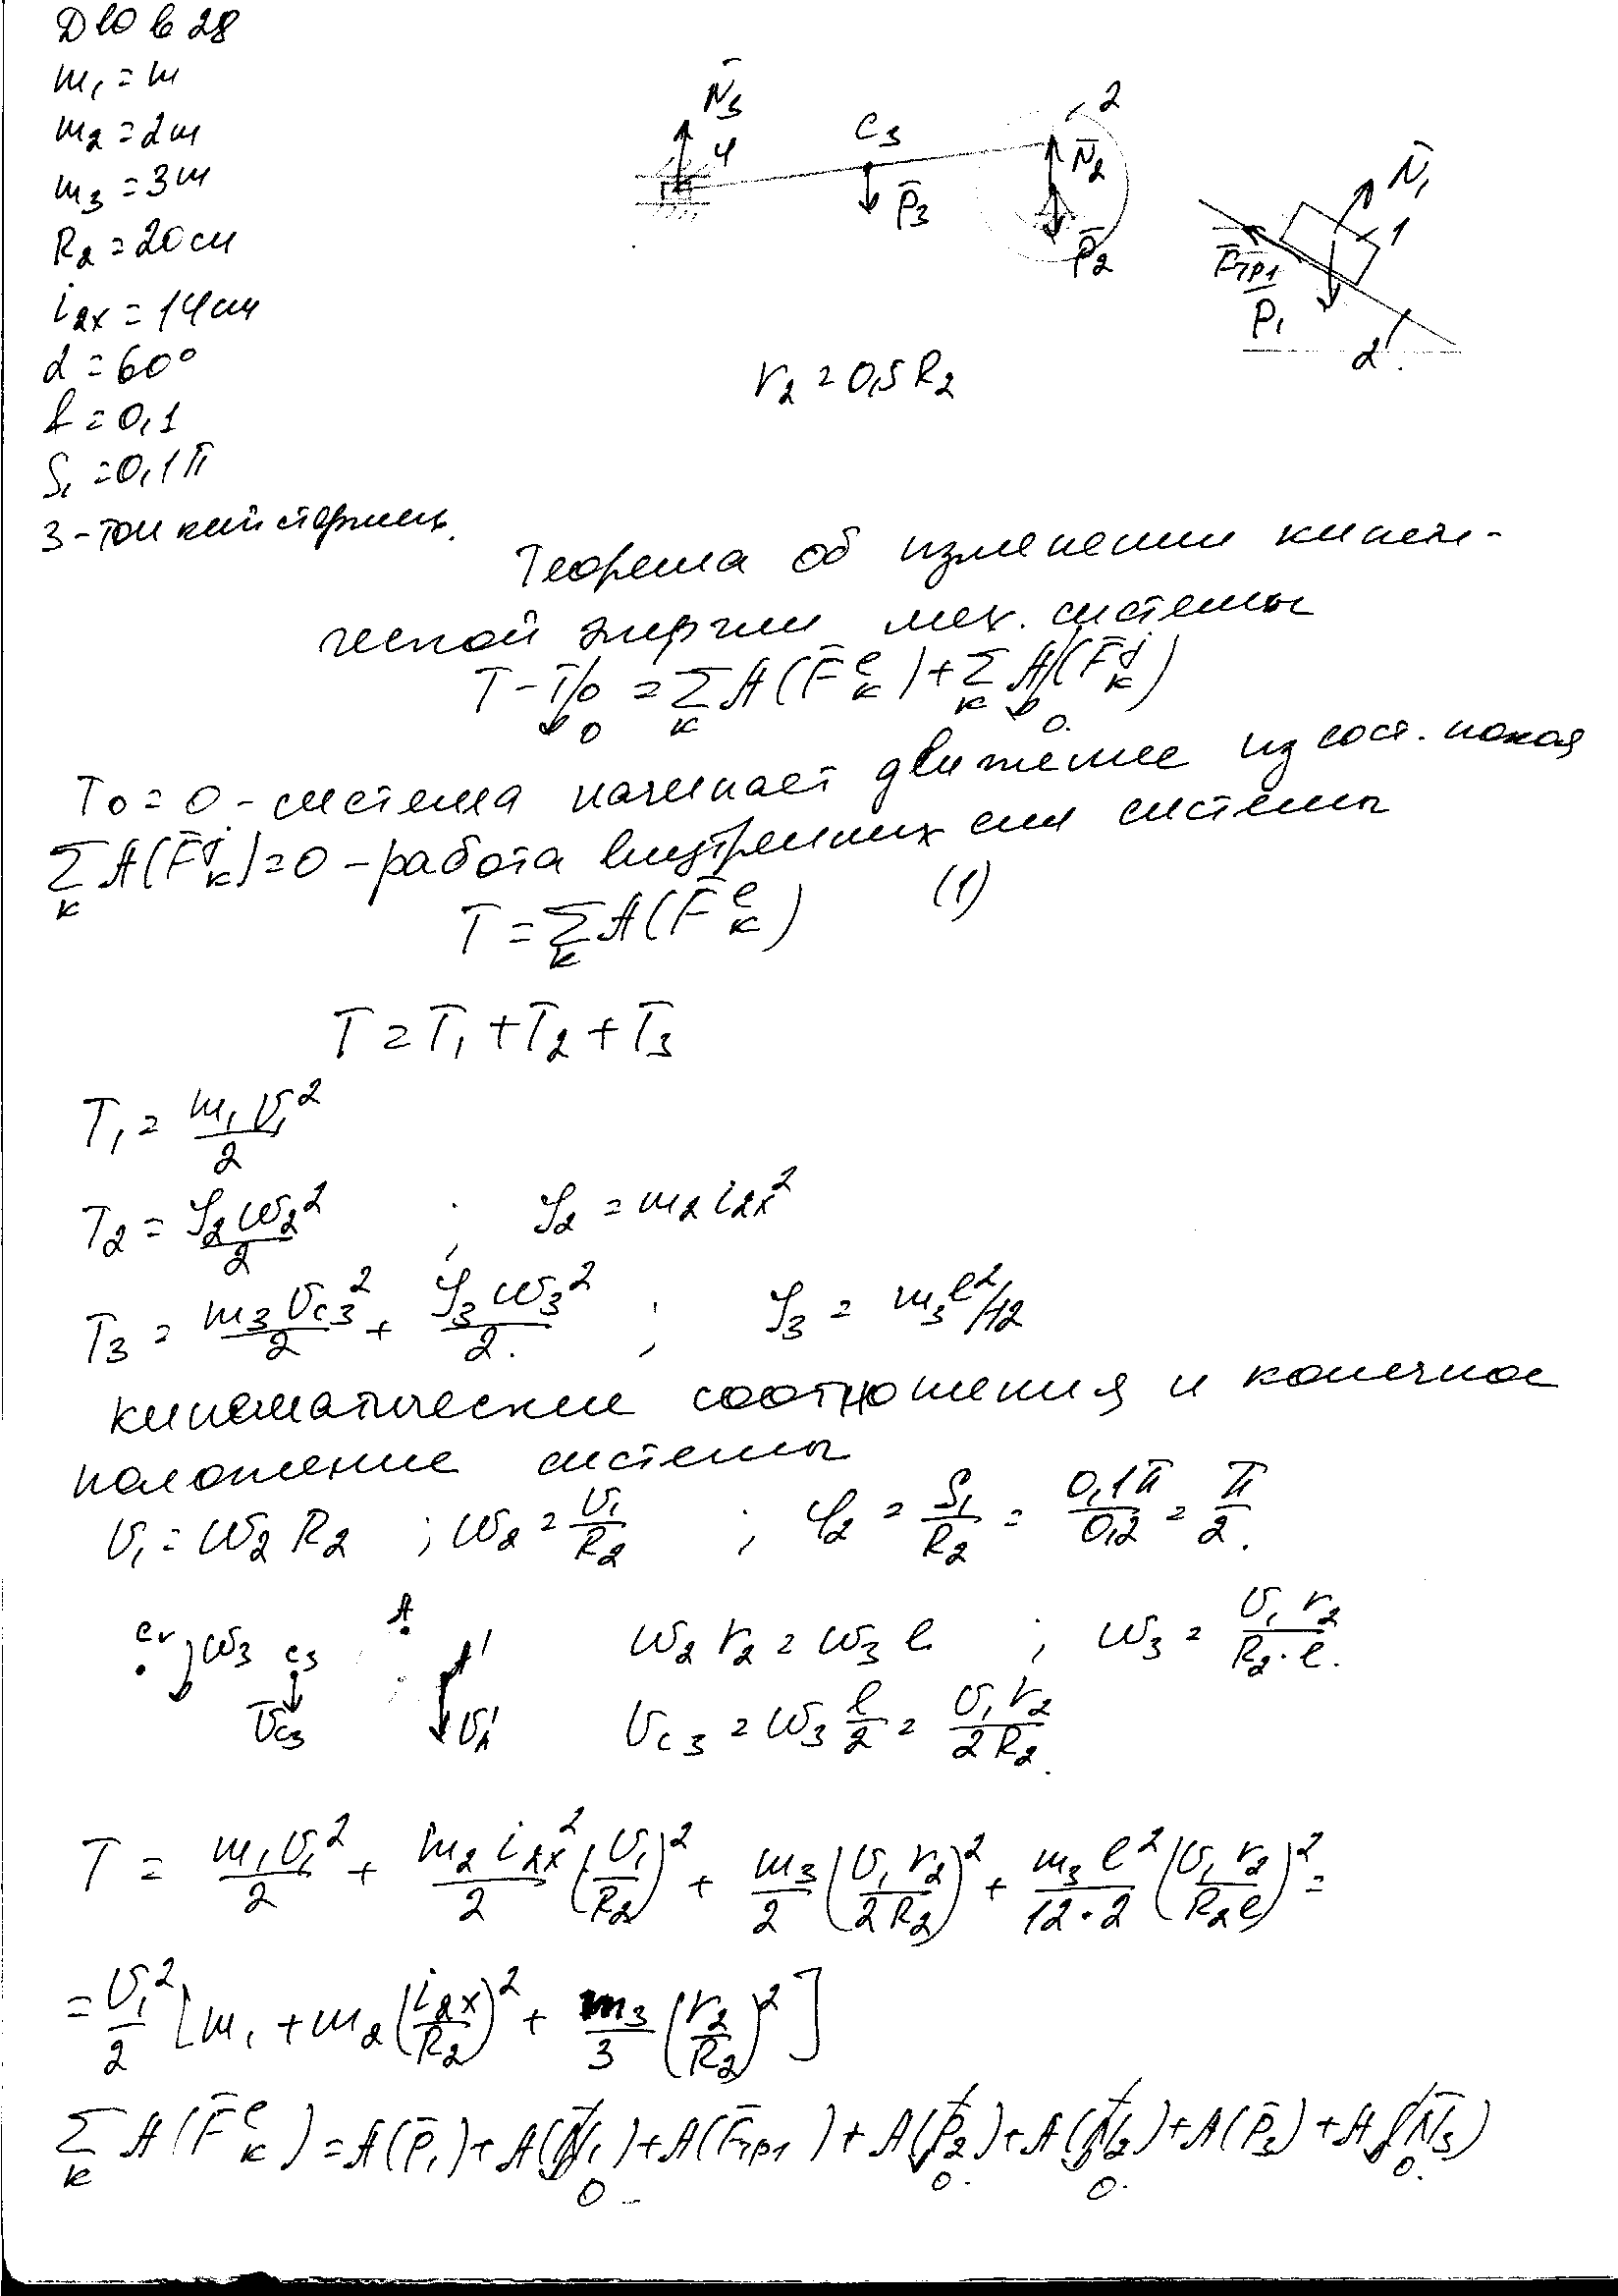 Д10 в 28
m₁ = m
m₂ = 2m
m₃ = 3m
R₂ = 20 см
i₂ₓ = 14 см
α = 60°
f = 0,1
S₁ = 0,1π
3 - тонкий стержень.
N̄₃
4
C₃
P̄₃
2
N̄₂
P̄₂
N̄₁
1
F̄тр1
P̄₁
α
r₂ = 0,5 R₂
Теорема об изменении кинети-
ческой энергии мех. системы
T - T₀ = Σ A(F̄ₖᵉ) + Σ A(F̄ₖʲ)
к 0 к к 0.
T₀ = 0 - система начинает движение из сост. покоя
Σ A(F̄ₖʲ) = 0 - работа внутренних сил системы
к
T = Σ A(F̄ₖᵉ) (1)
к
T = T₁ + T₂ + T₃
T₁ = m₁ v₁² / 2
T₂ = J₂ ω₂² / 2 ; J₂ = m₂ i₂ₓ²
T₃ = m₃ v_c3² / 2 + J₃ ω₃² / 2 ; J₃ = m₃ l²/12
кинематические соотношения и конечное
положение системы
v₁ = ω₂ R₂ ; ω₂ = v₁ / R₂ ; φ₂ = S₁ / R₂ = 0,1π / 0,2 = π / 2.
cv ω₃ c₃ A A' ω₂ r₂ = ω₃ l ; ω₃ = v₁ r₂ / R₂·l.
v̄_c3 v_A' v_c3 = ω₃ l / 2 = v₁ r₂ / 2R₂.
T = m₁ v₁² / 2 + m₂ i₂ₓ² / 2 (v₁ / R₂)² + m₃ / 2 (v₁ r₂ / 2R₂)² + m₃ l² / 12·2 (v₁ r₂ / R₂ l)² =
= v₁² / 2 [m₁ + m₂ (i₂ₓ / R₂)² + m₃ / 3 (r₂ / R₂)²]
Σ A(F̄ₖᵉ) = A(P̄₁) + A(N̄₁) + A(F̄тр1) + A(P̄₂) + A(N̄₂) + A(P̄₃) + A(N̄₃)
к 0 0. 0. 0.